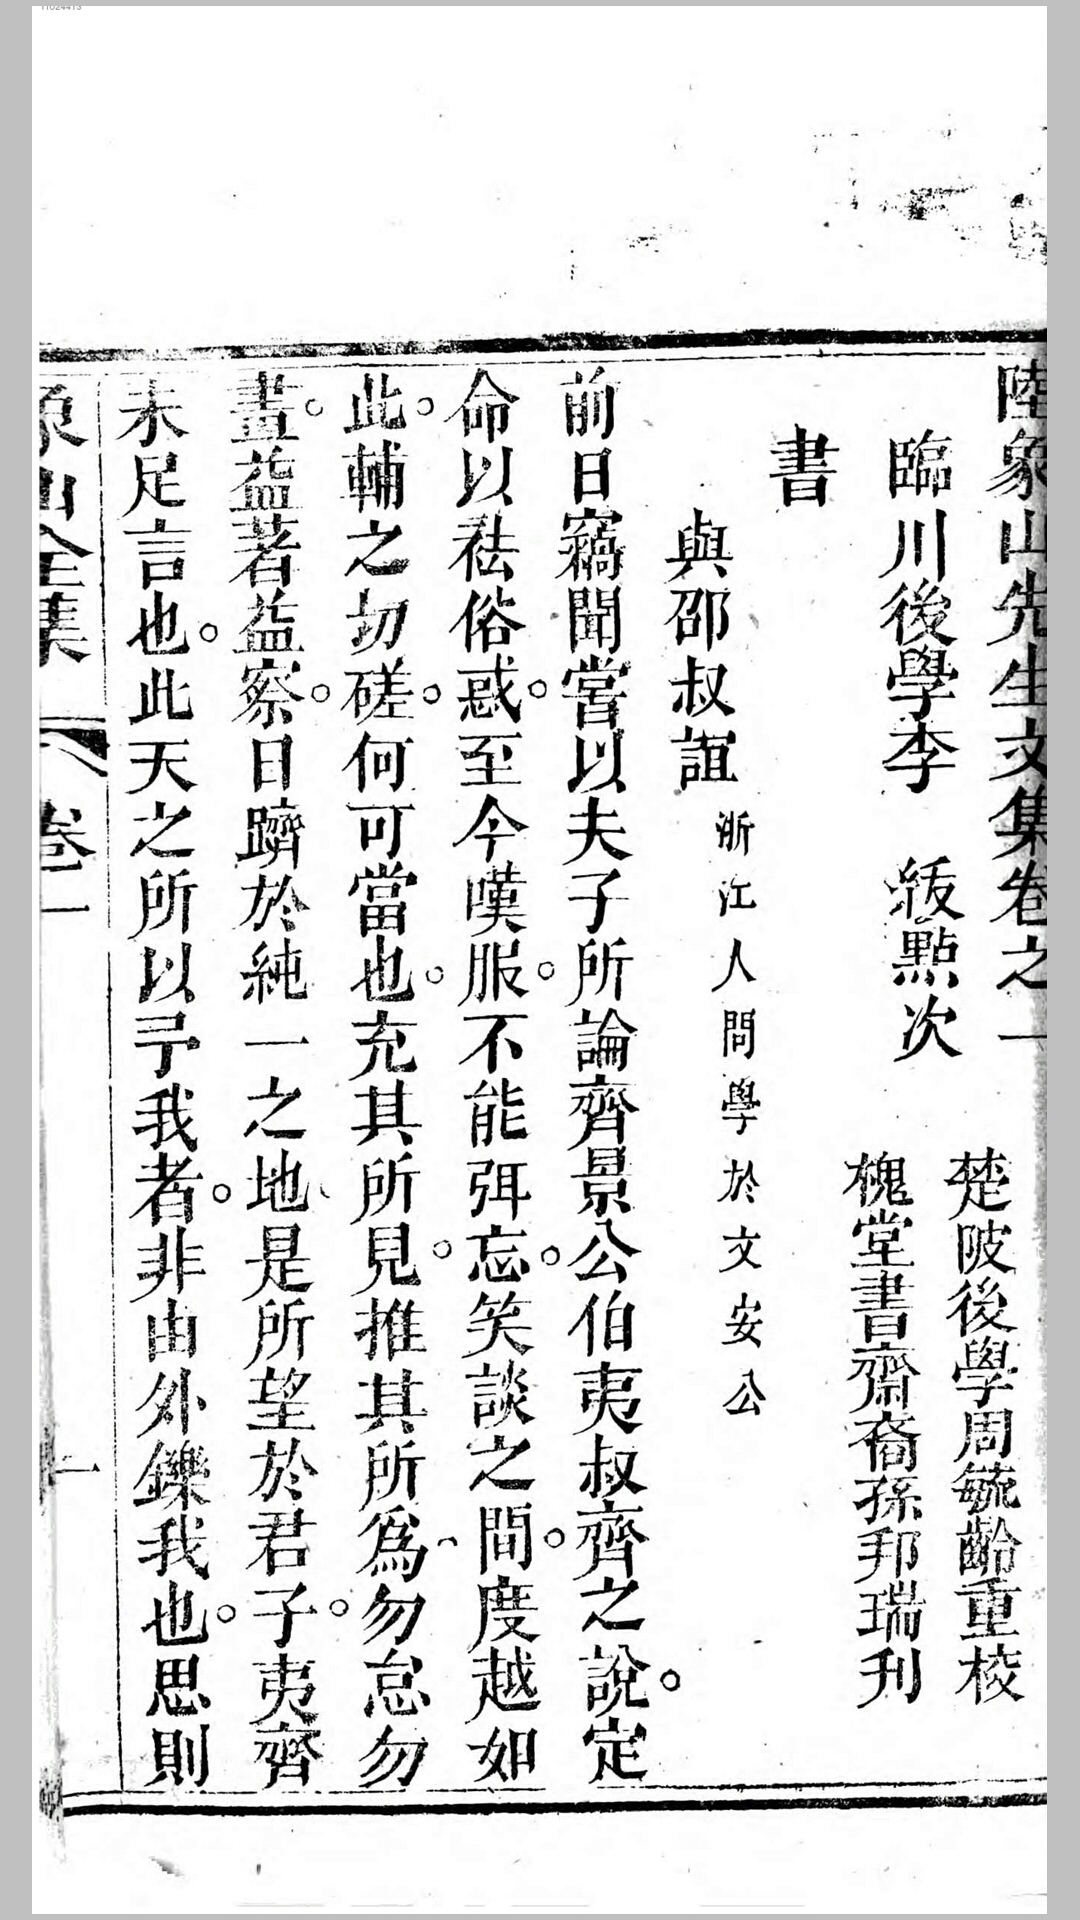 陸象山先生文集卷之一
楚陂後學周毓齡重校
臨川後學李　紱點次
槐堂書齋裔孫邦瑞刊
書
與邵叔誼
浙江人問學於文安公
前日竊聞嘗以夫子所論齊景公伯夷叔齊之說。定
命以祛俗惑。至今嘆服。不能弭忘。笑談之間。度越如
此。輔之切磋。何可當也。充其所見。推其所爲、勿怠勿
畫。益著益察。日躋於純一之地、是所望於君子。夷齊
未足言也。此天之所以予我者。非由外鑠我也。思則
象山全集
卷一
一